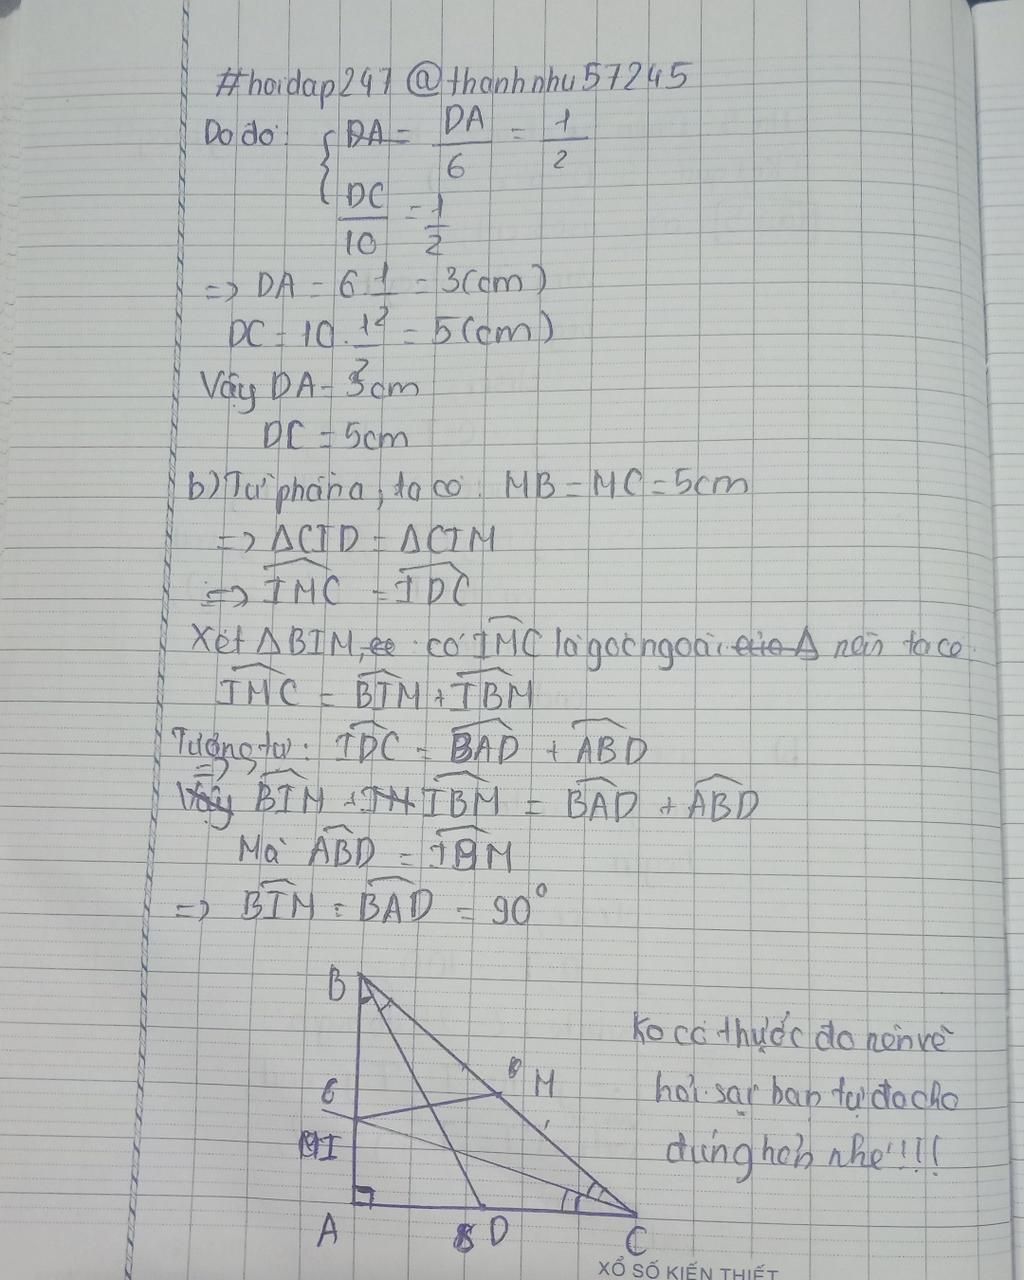 #hoidap247 @thanhnhu57245
Do đó: { DA = DA/6 = 1/2
DC/10 = 1/2
=> DA = 6 1/2 = 3(cm)
DC = 10. 1/2 = 5(cm)
Vậy DA = 3cm
DC = 5cm
b) Từ phần a, ta có: MB = MC = 5cm
=> ΔCID = ΔCIM
=> IMC = IDC
Xét ΔBIM, có IMC là góc ngoài của Δ nên ta có
IMC = BIM + IBM
Tương tự: IDC = BAD + ABD
=> BIM + IBM = BAD + ABD
Mà ABD = IBM
=> BIM = BAD = 90°
B
6
M
I
A
D
C
Ko có thước đo nên vẽ
hơi sai bạn tự đo cho
đúng hơn nhé!!!!
XỔ SỐ KIẾN THIẾT